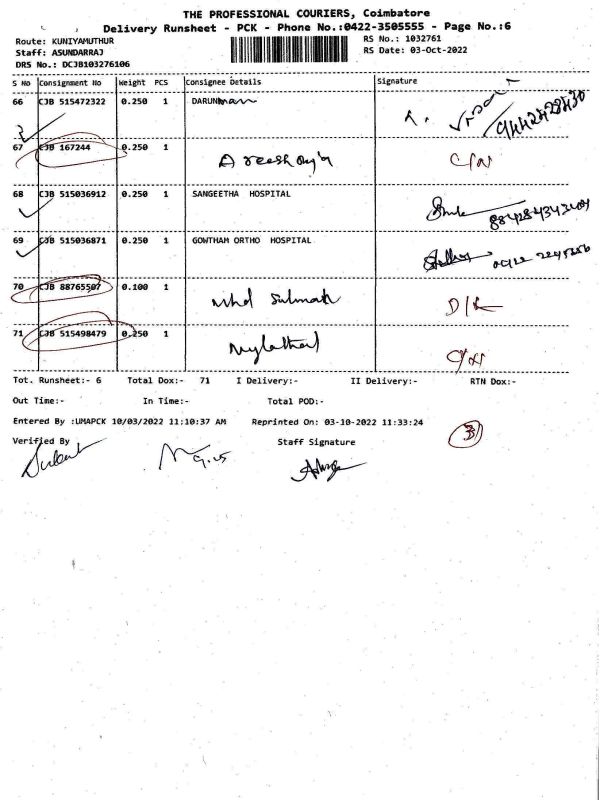 THE PROFESSIONAL COURIERS, Coimbatore
Delivery Runsheet - PCK - Phone No.:0422-3505555 - Page No.:6
Route: KUNIYAMUTHUR
RS No.: 1032761
Staff: ASUNDARRAJ
RS Date: 03-Oct-2022
DRS No.: DCJB103276106
S No Consignment No Weight PCS Consignee Details Signature
66 CJB 515472322 0.250 1 DARUN
67 CJB 167244 0.250 1
68 CJB 515036912 0.250 1 SANGEETHA HOSPITAL
69 CJB 515036871 0.250 1 GOWTHAM ORTHO HOSPITAL
70 CJB 88765507 0.100 1 D/L
71 CJB 515498479 0.250 1
Tot. Runsheet:- 6 Total Dox:- 71 I Delivery:- II Delivery:- RTN Dox:-
Out Time:- In Time:- Total POD:-
Entered By :UMAPCK 10/03/2022 11:10:37 AM Reprinted On: 03-10-2022 11:33:24
Verified By Staff Signature